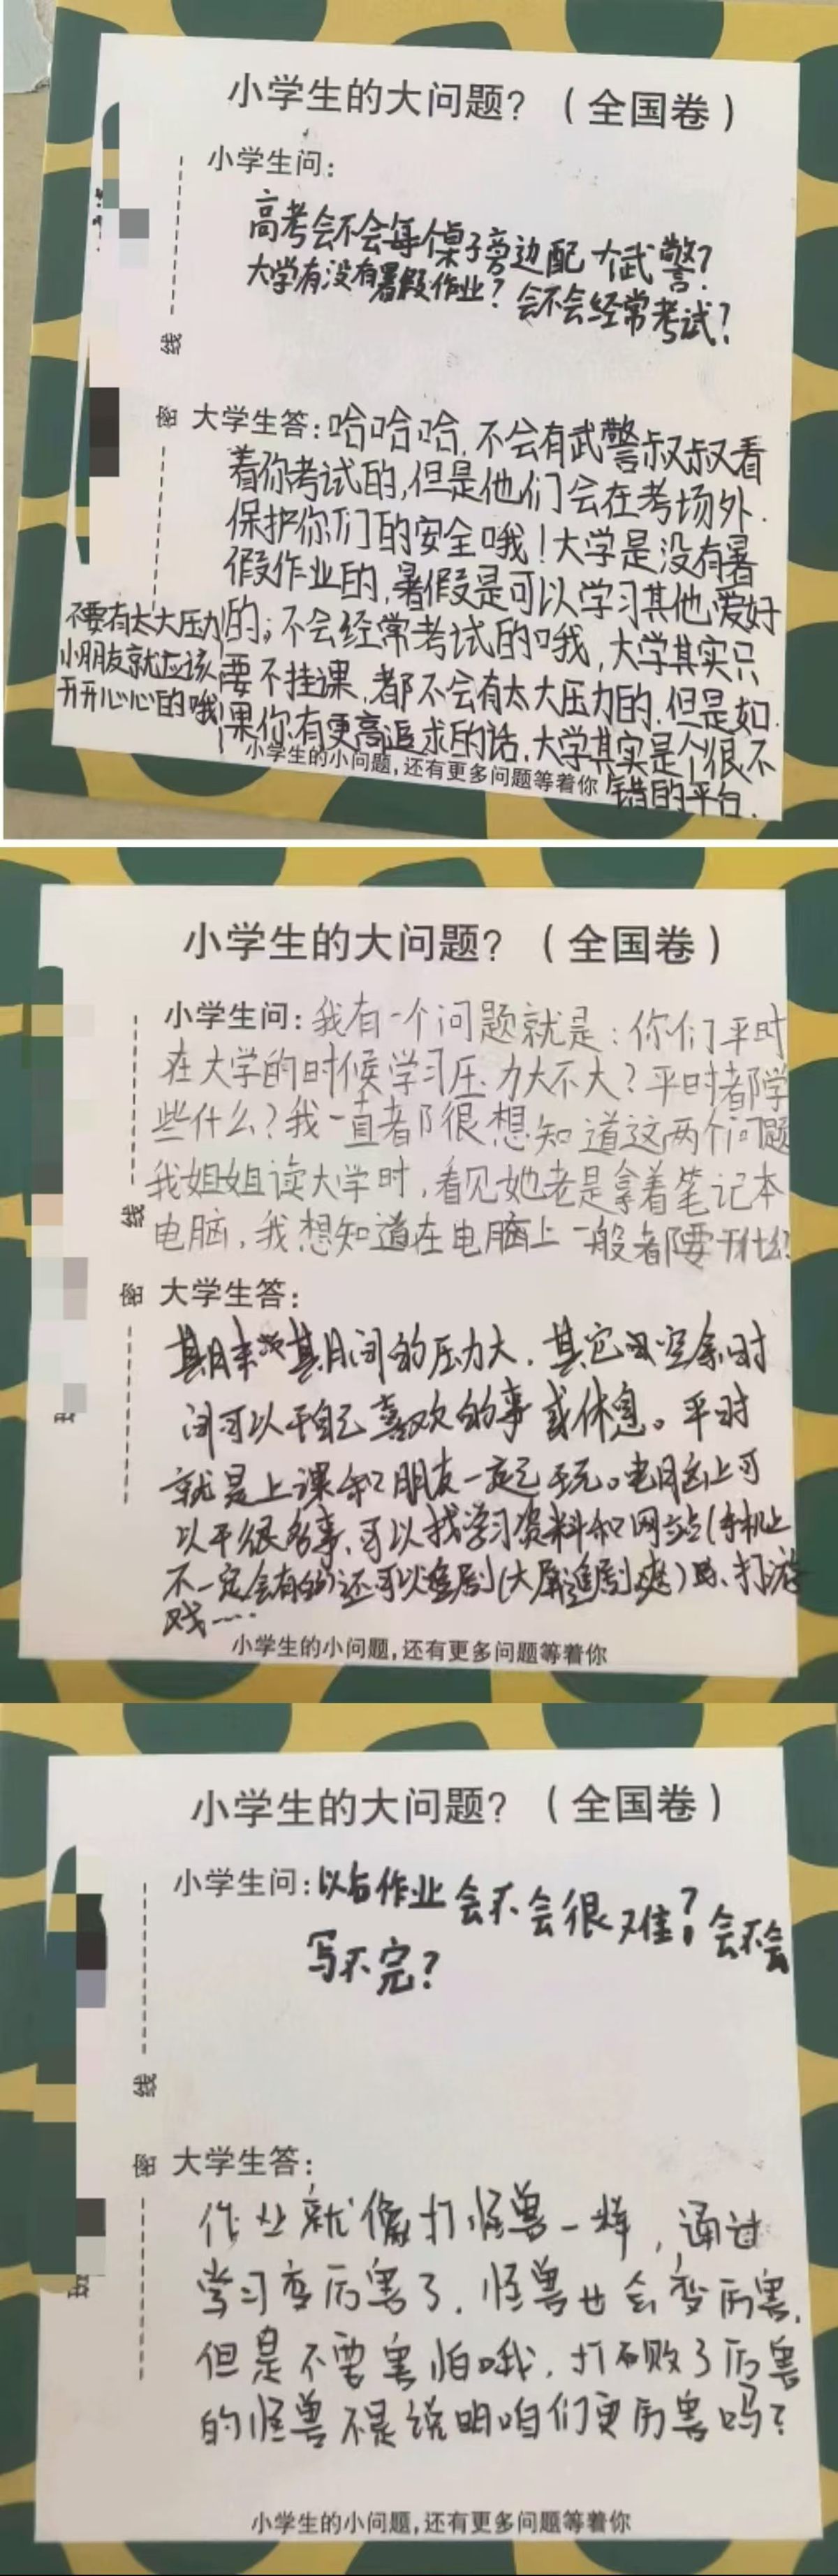 小学生的大问题?(全国卷)
小学生问:
高考会不会每个桌子旁边配个武警?
大学有没有暑假作业?会不会经常考试?
线
密
大学生答:哈哈哈,不会有武警叔叔看
着你考试的,但是他们会在考场外
保护你们的安全哦!大学是没有暑
假作业的,暑假是可以学习其他爱好
的;不会经常考试的哦,大学其实只
要不挂课,都不会有太大压力的.但是如
果你有更高追求的话,大学其实是个很不
错的平台.
不要有太大压力
小朋友就应该
开开心心的哦!
小学生的小问题,还有更多问题等着你
小学生的大问题?(全国卷)
小学生问:我有一个问题就是:你们平时
在大学的时候学习压力大不大?平时都学
些什么?我一直都很想知道这两个问题
我姐姐读大学时,看见她老是拿着笔记本
电脑,我想知道在电脑上一般都要干什么?
线
密
大学生答:
期末期间的压力大.其它空余时
间可以干自己喜欢的事或休息。平时
就是上课和朋友一起玩。电脑上可
以干很多事,可以找学习资料和网站(手机上
不一定会有的)还可以追剧(大屏追剧爽)、打游
戏……
小学生的小问题,还有更多问题等着你
小学生的大问题?(全国卷)
小学生问:以后作业会不会很难?会不会
写不完?
线
密
大学生答:
作业就像打怪兽一样,通过
学习变厉害了.怪兽也会变厉害,
但是不要害怕哦,打败了厉害
的怪兽不是说明咱们更厉害吗?
班
小学生的小问题,还有更多问题等着你